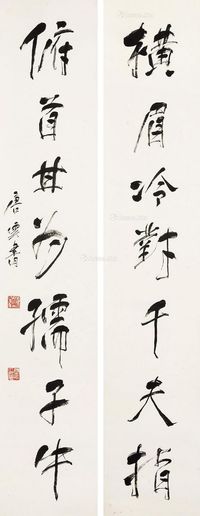 橫眉冷對千夫指
俯首甘為孺子牛
唐雲書